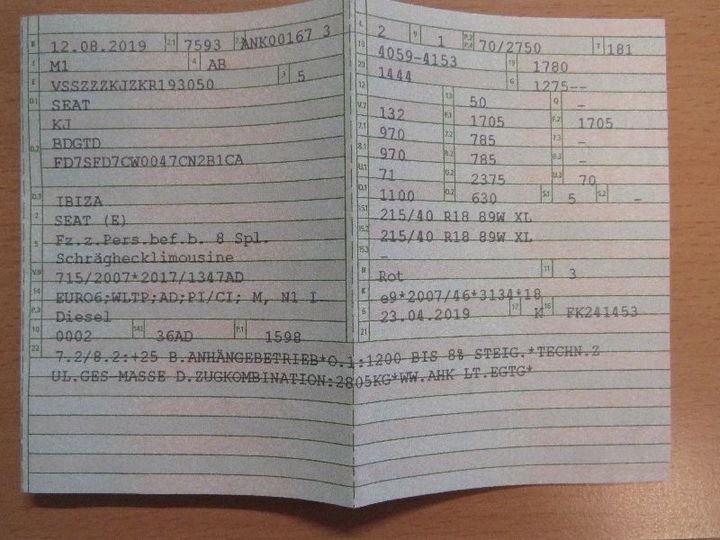 B 12.08.2019 2.1 7593 2.2 ANK00167 3
J M1 4 AB
E VSSZZZKJZKR193050 3 5
D.1 SEAT
KJ
D.2 BDGTD
FD7SFD7CW0047CN2B1CA
D.3 IBIZA
2 SEAT (E)
5 Fz.z.Pers.bef.b. 8 Spl.
Schräghecklimousine
V.9 715/2007*2017/1347AD
14 EURO6;WLTP;AD;PI/CI; M, N1 I
P.3 Diesel
10 0002 14.1 36AD P.1 1598
L 2 9 1 P.2 P.4 70/2750 T 181
18 4059-4153 19 1780
20 1444 G 1275--
12 - 13 50 Q -
V.7 132 F.1 1705 F.2 1705
7.1 970 7.2 785 7.3 -
8.1 970 8.2 785 8.3 -
U.1 71 U.2 2375 U.3 70
O.1 1100 O.2 630 S.1 5 S.2 -
15.1 215/40 R18 89W XL
15.2 215/40 R18 89W XL
15.3 -
R Rot 11 3
K e9*2007/46*3134*18
6 23.04.2019 17 K 16 FK241453
21
22 7.2/8.2:+25 B.ANHÄNGEBETRIEB*O.1:1200 BIS 8% STEIG.*TECHN.Z
UL.GES-MASSE D.ZUGKOMBINATION:2805KG*WW.AHK LT.EGTG*